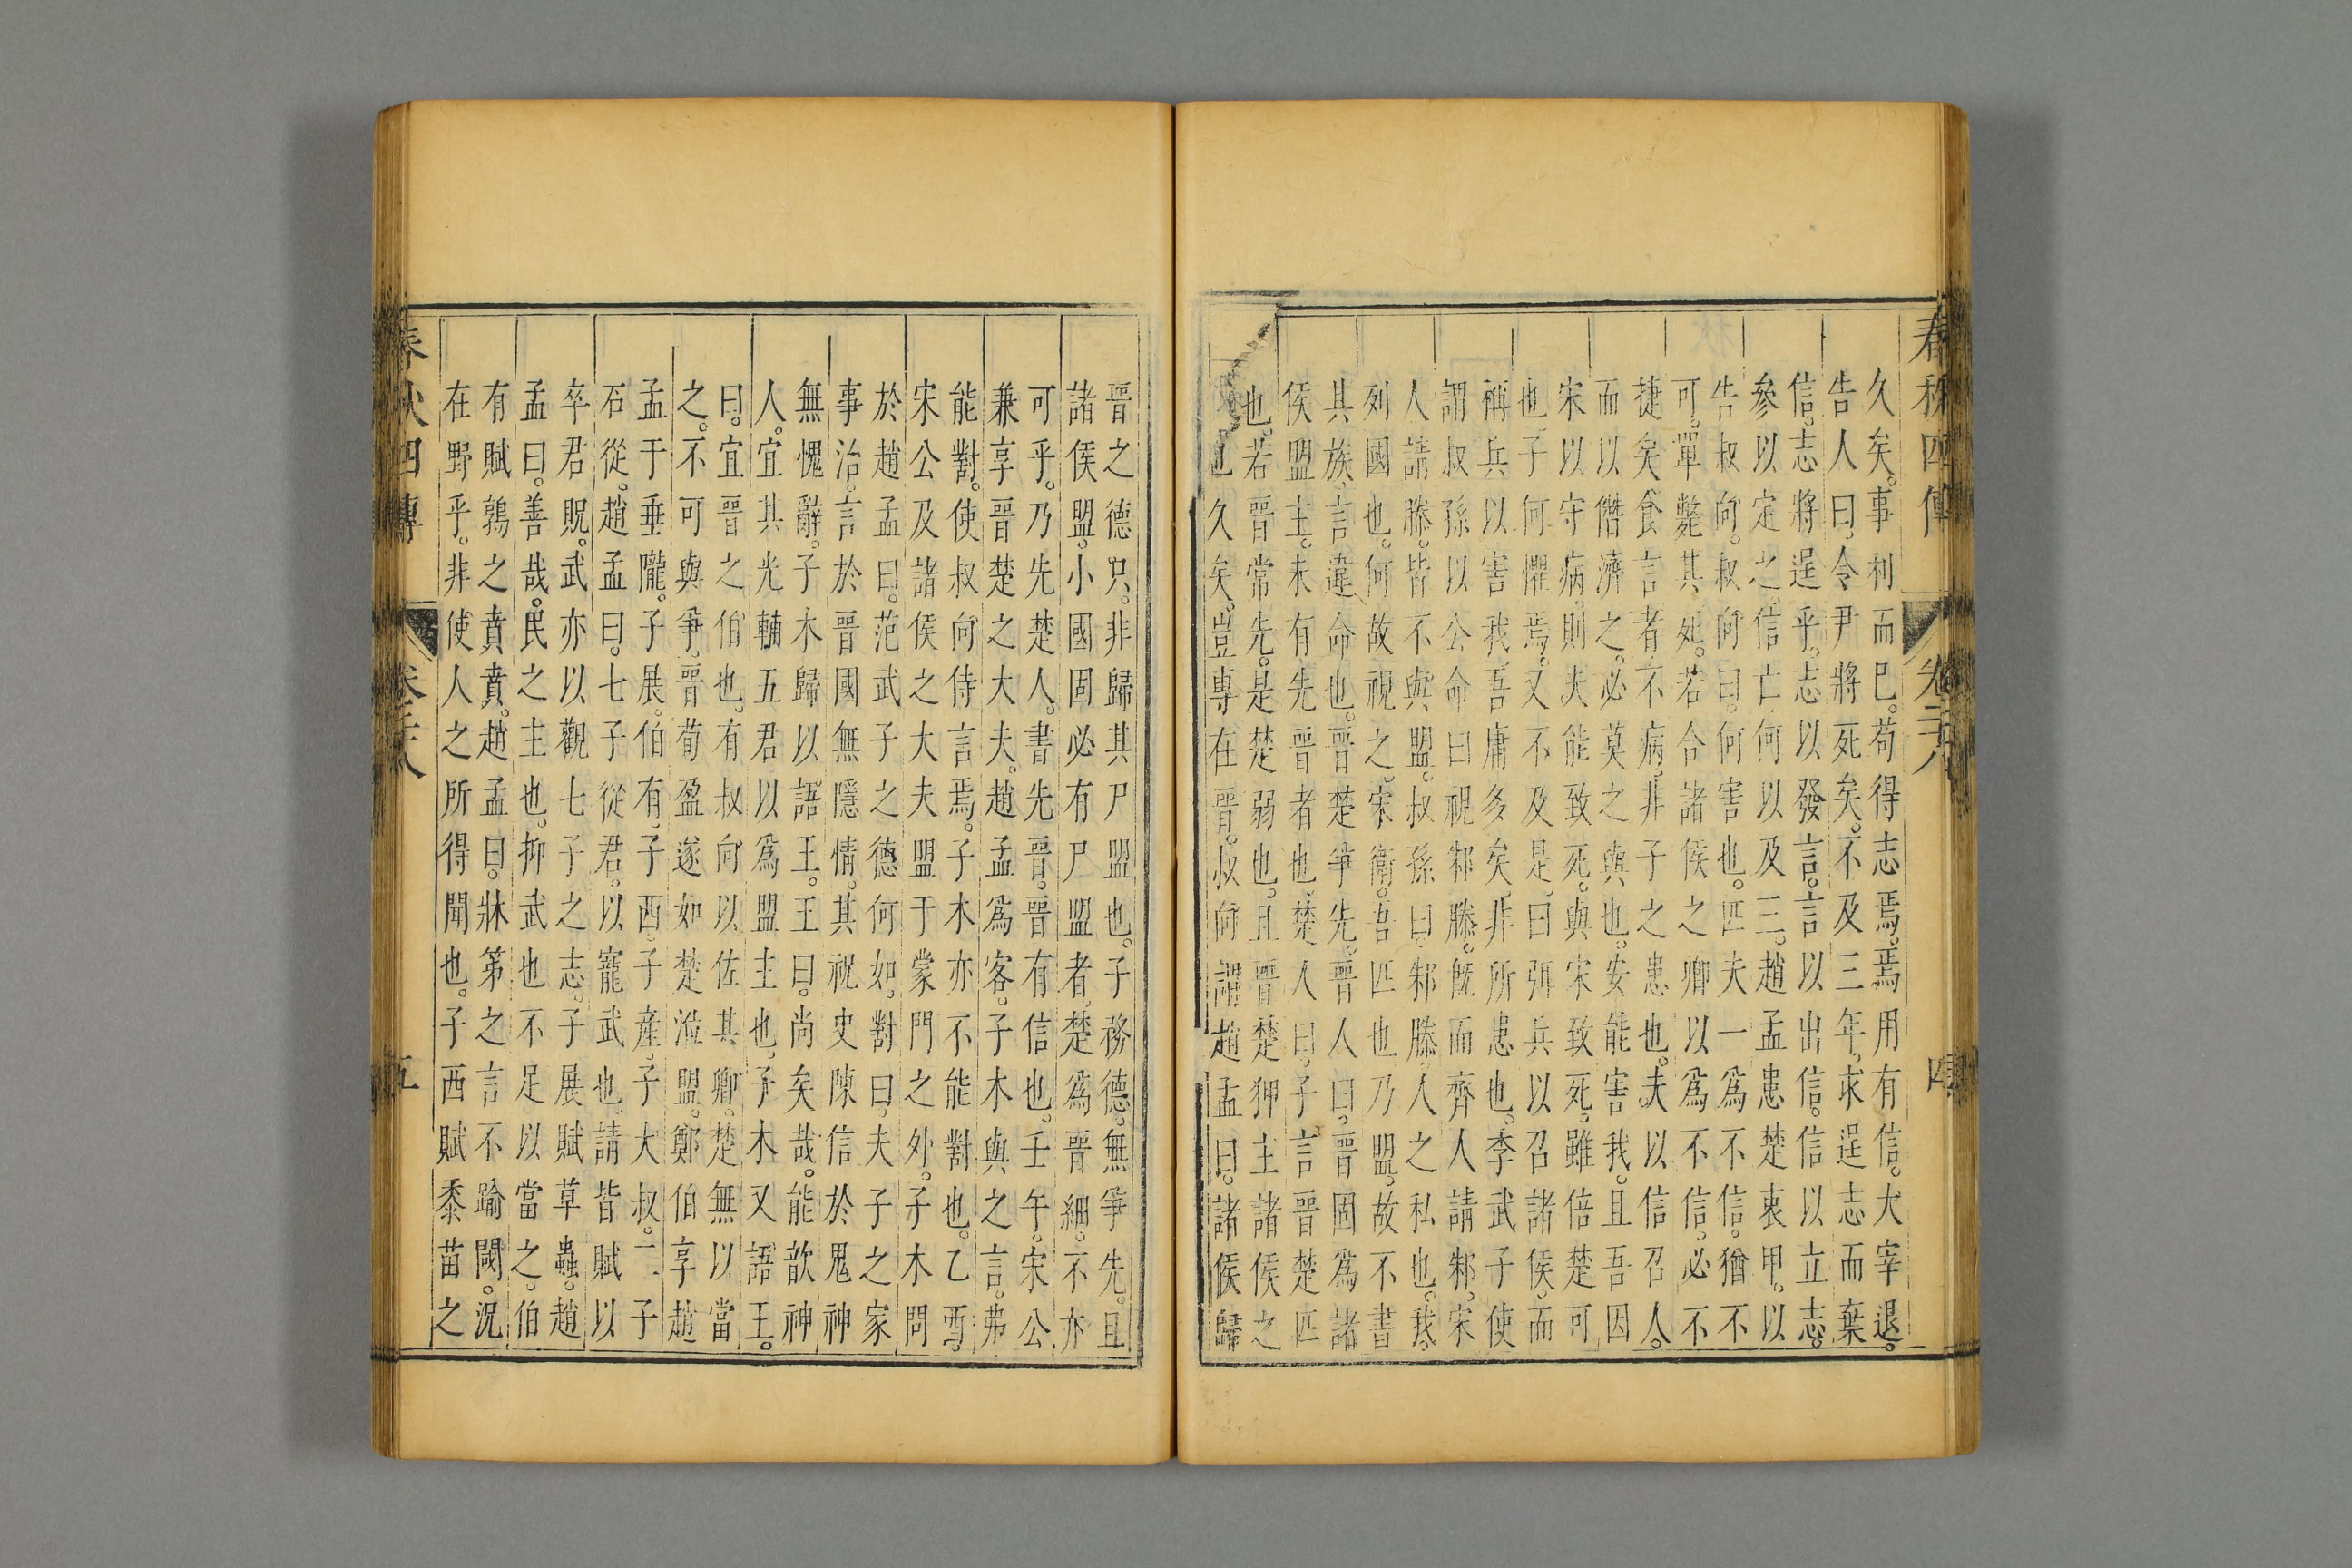 春秋四傳
卷二十八
四
久矣。事利而巳。苟得志焉。焉用有信。大宰退。
告人曰。令尹將死矣。不及三年。求逞志而棄
信。志將逞乎。志以發言。言以出信。信以立志。
參以定之。信亡。何以及三。趙孟患楚衷甲。以
告叔向。叔向曰。何害也。匹夫一爲不信。猶不
可。單斃其死。若合諸侯之卿。以爲不信。必不
捷矣。食言者不病。非子之患也。夫以信召人。
而以僭濟之。必莫之與也。安能害我。且吾因
宋以守病。則夫能致死。與宋致死。雖倍楚可
也。子何懼焉。又不及是。曰弭兵以召諸侯。而
稱兵以害我。吾庸多矣。非所患也。季武子使
謂叔孫以公命曰視邾滕。旣而齊人請邾。宋
人請滕。皆不與盟。叔孫曰。邾滕。人之私也。我。
列國也。何故視之。宋衛。吾匹也。乃盟。故不書
其族。言違命也。晉楚爭先。晉人曰。晉固爲諸
侯盟主。未有先晉者也。楚人曰。子言晉楚匹
也。若晉常先。是楚弱也。且晉楚狎主諸侯之
也久矣。豈專在晉。叔向謂趙孟曰。諸侯歸
晉之德只。非歸其尸盟也。子務德。無爭先。且
諸侯盟。小國固必有尸盟者。楚爲晉細。不亦
可乎。乃先楚人。書先晉。晉有信也。壬午。宋公
兼享晉楚之大夫。趙孟爲客。子木與之言。弗
能對。使叔向侍言焉。子木亦不能對也。乙酉。
宋公及諸侯之大夫盟于蒙門之外。子木問
於趙孟曰。范武子之德何如。對曰。夫子之家
事治。言於晉國無隱情。其祝史陳信於鬼神
無愧辭。子木歸以語王。王曰。尚矣哉。能歆神
人。宜其光輔五君以爲盟主也。子木又語王
曰。宜晉之伯也。有叔向以佐其卿。楚無以當
之。不可與爭。晉荀盈遂如楚涖盟。鄭伯享趙
孟于垂隴。子展。伯有。子西。子產。子大叔。二子
石從。趙孟曰。七子從君。以寵武也。請皆賦以
卒君貺。武亦以觀七子之志。子展賦草蟲。趙
孟曰。善哉。民之主也。抑武也不足以當之。伯
有賦鶉之賁賁。趙孟曰。牀笫之言不踰閾。況
在野乎。非使人之所得聞也。子西賦黍苗之
春秋四傳
卷二十八
五